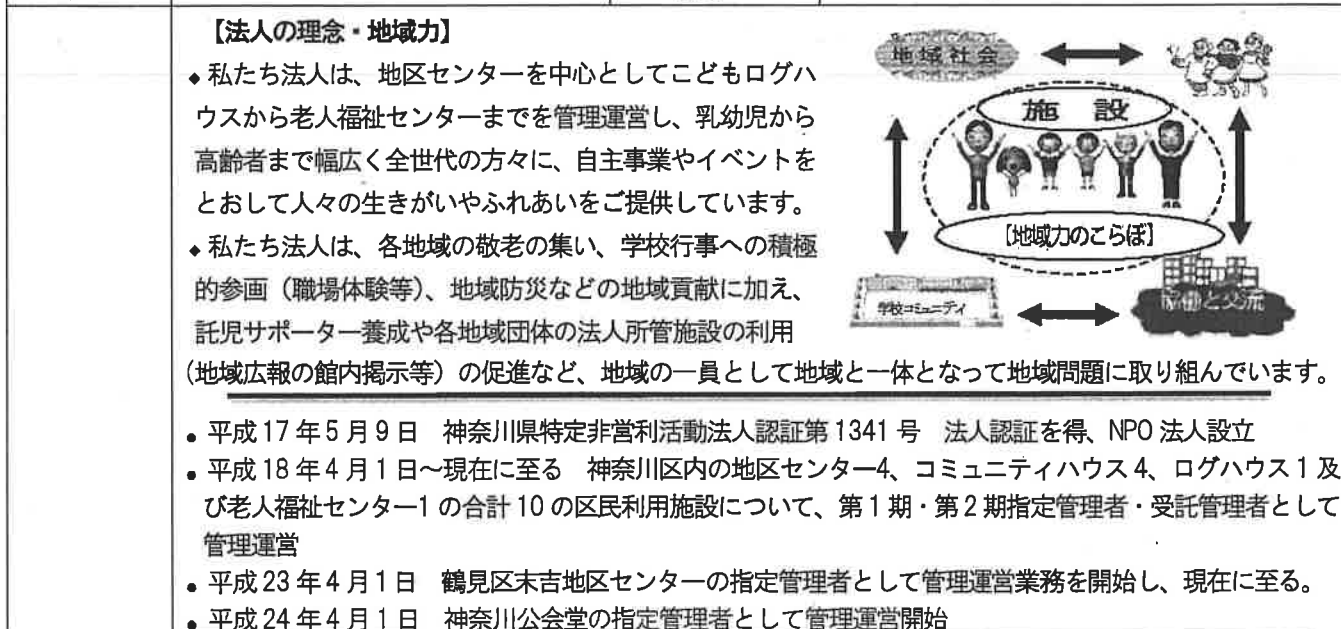 【法人の理念・地域力】
◆私たち法人は、地区センターを中心としてこどもログハ
ウスから老人福祉センターまでを管理運営し、乳幼児から
高齢者まで幅広く全世代の方々に、自主事業やイベントを
とおして人々の生きがいやふれあいをご提供しています。
◆私たち法人は、各地域の敬老の集い、学校行事への積極
的参画（職場体験等）、地域防災などの地域貢献に加え、
託児サポーター養成や各地域団体の法人所管施設の利用
（地域広報の館内掲示等）の促進など、地域の一員として地域と一体となって地域問題に取り組んでいます。
地域社会
施 設
【地域力のこらぼ】
学校コミュニティ
と交流
● 平成17年5月9日 神奈川県特定非営利活動法人認証第1341号 法人認証を得、NPO法人設立
● 平成18年4月1日～現在に至る 神奈川区内の地区センター4、コミュニティハウス4、ログハウス1及
び老人福祉センター1の合計10の区民利用施設について、第1期・第2期指定管理者・受託管理者として
管理運営
● 平成23年4月1日 鶴見区末吉地区センターの指定管理者として管理運営業務を開始し、現在に至る。
● 平成24年4月1日 神奈川公会堂の指定管理者として管理運営開始